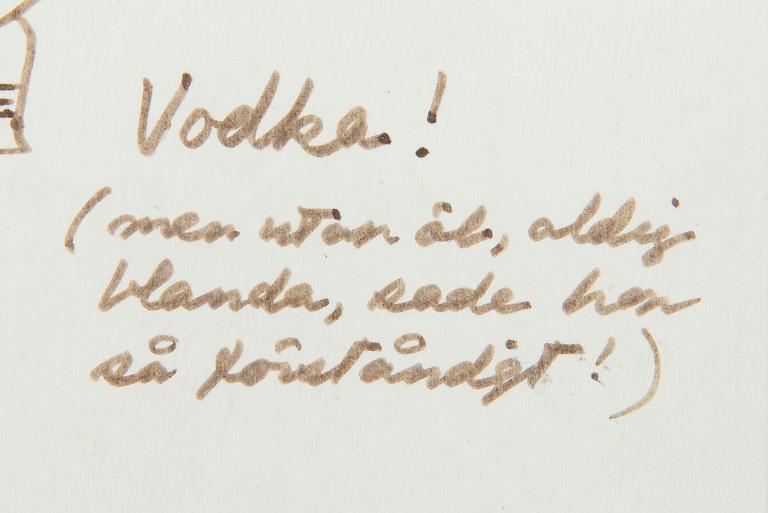 Vodka!
(men utan öl, aldrig
blanda, sade hon
så förståndigt!)